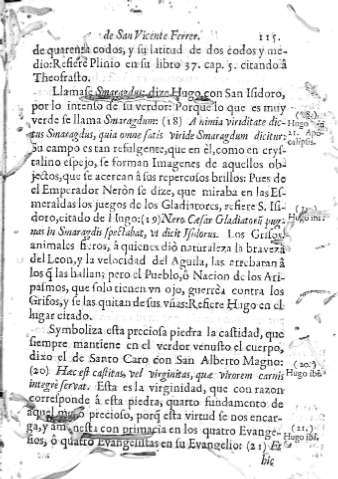 de San Vicente Ferrer. 115.
de quarenta codos, y su latitud de dos codos y me-
dio: Refiere Plinio en su libro 37. cap. 5. citando â
Theofrasto.
Llamase Smaragdus dize Hugo con San Isidoro,
por lo intenso de su verdor: Porque lo que es muy
verde se llama Smaragdum: (18) A nimia viriditate dic-
tus Smaragdus, quia omne satis viride Smaragdum dicitur:
Su campo es tan refulgente, que en èl, como en crys-
talino espejo, se forman Imagenes de aquellos ob-
jectos, que se acercan â sus repercusos brillos: Pues de
el Emperador Neròn se dize, que miraba en las Es-
meraldas los juegos de los Gladiatores, refiere S. Isi-
doro, citado de Hugo: (19) Nero Cæsar Gladiatorū pug-
nas in Smaragdis spectabat, ut dicit Isidorus. Los Grifos,
animales fieros, â quienes diò naturaleza la braveza
del Leon, y la velocidad del Aguila, las arrebatan â
los q̃ las hallan; pero el Pueblo, ò Nacion de los Ari-
pasmos, que solo tienen vn ojo, guerrèa contra los
Grifos, y se las quitan de sus vñas: Refiere Hugo en el
lugar citado.
Symboliza esta preciosa piedra la castidad, que
siempre mantiene en el verdor venusto el cuerpo,
dixo el de Santo Caro con San Alberto Magno:
(20) Hæc est castitas, vel virginitas, quæ virorem carnis
integrè servat. Esta es la virginidad, que con razon
corresponde â esta piedra, quarto fundamento de
aquel muro precioso, porq̃ esta virtud se nos encar-
ga, y amonesta con primacia en los quatro Evange-
lios, ò quatro Evangelistas en su Evangelio: (21) Et
hic
(18.)
Hugo in
21. Apo-
calipsis.
(19.)
Hugo ibi.
(20.)
Hugo ibi.
(21.)
Hugo ibi.